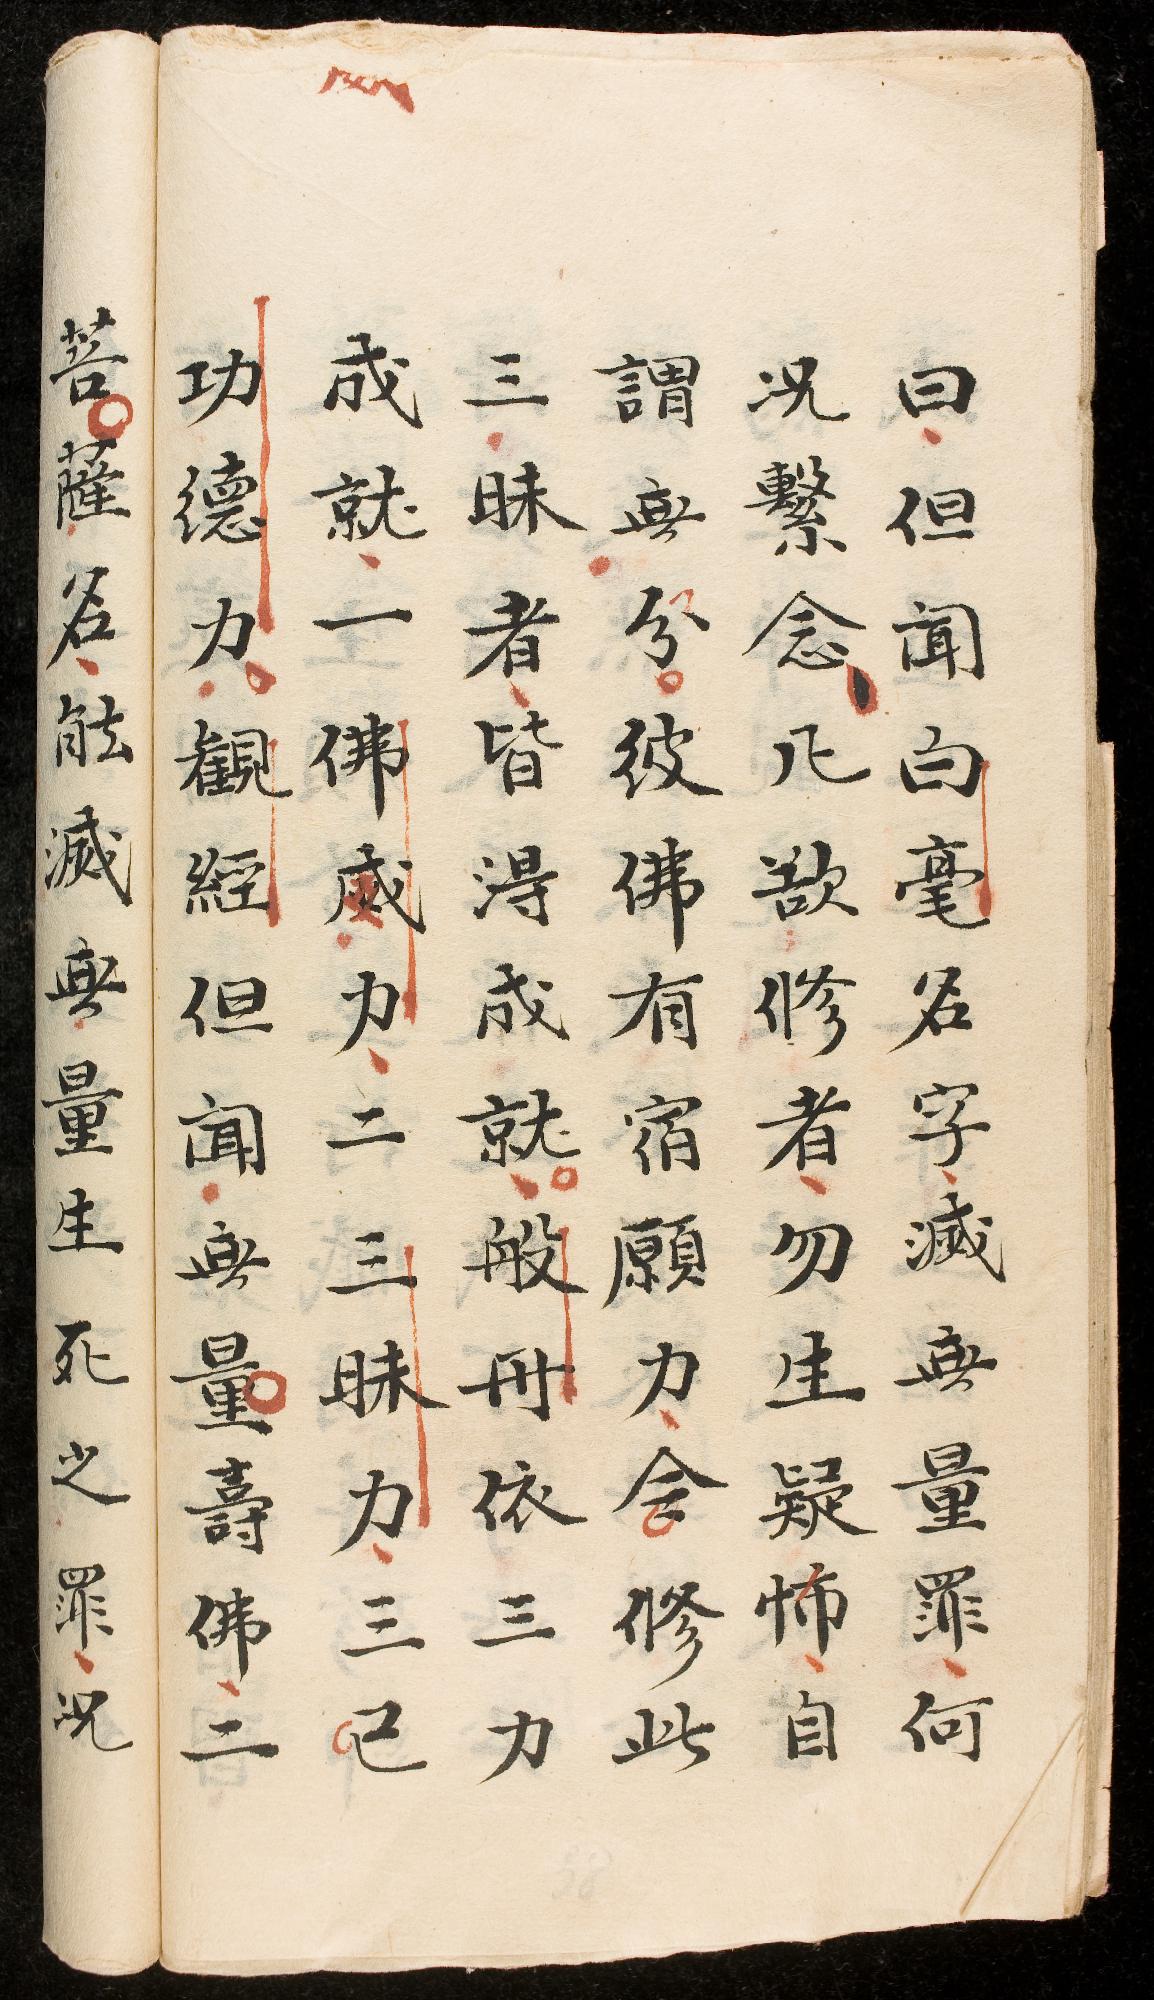 曰但聞白毫名字滅無量罪何
况繫念凡欲修者勿生疑怖自
謂無分彼佛有宿願力令修此
三昧者皆得成就般舟依三力
成就一佛威力二三昧力三己
功德力觀經但聞無量壽佛二
菩薩名能滅無量生死之罪况